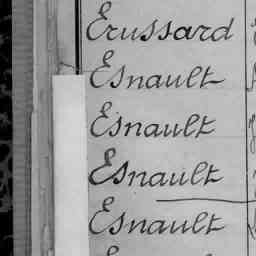 Erussard
Esnault
Esnault
Esnault
Esnault